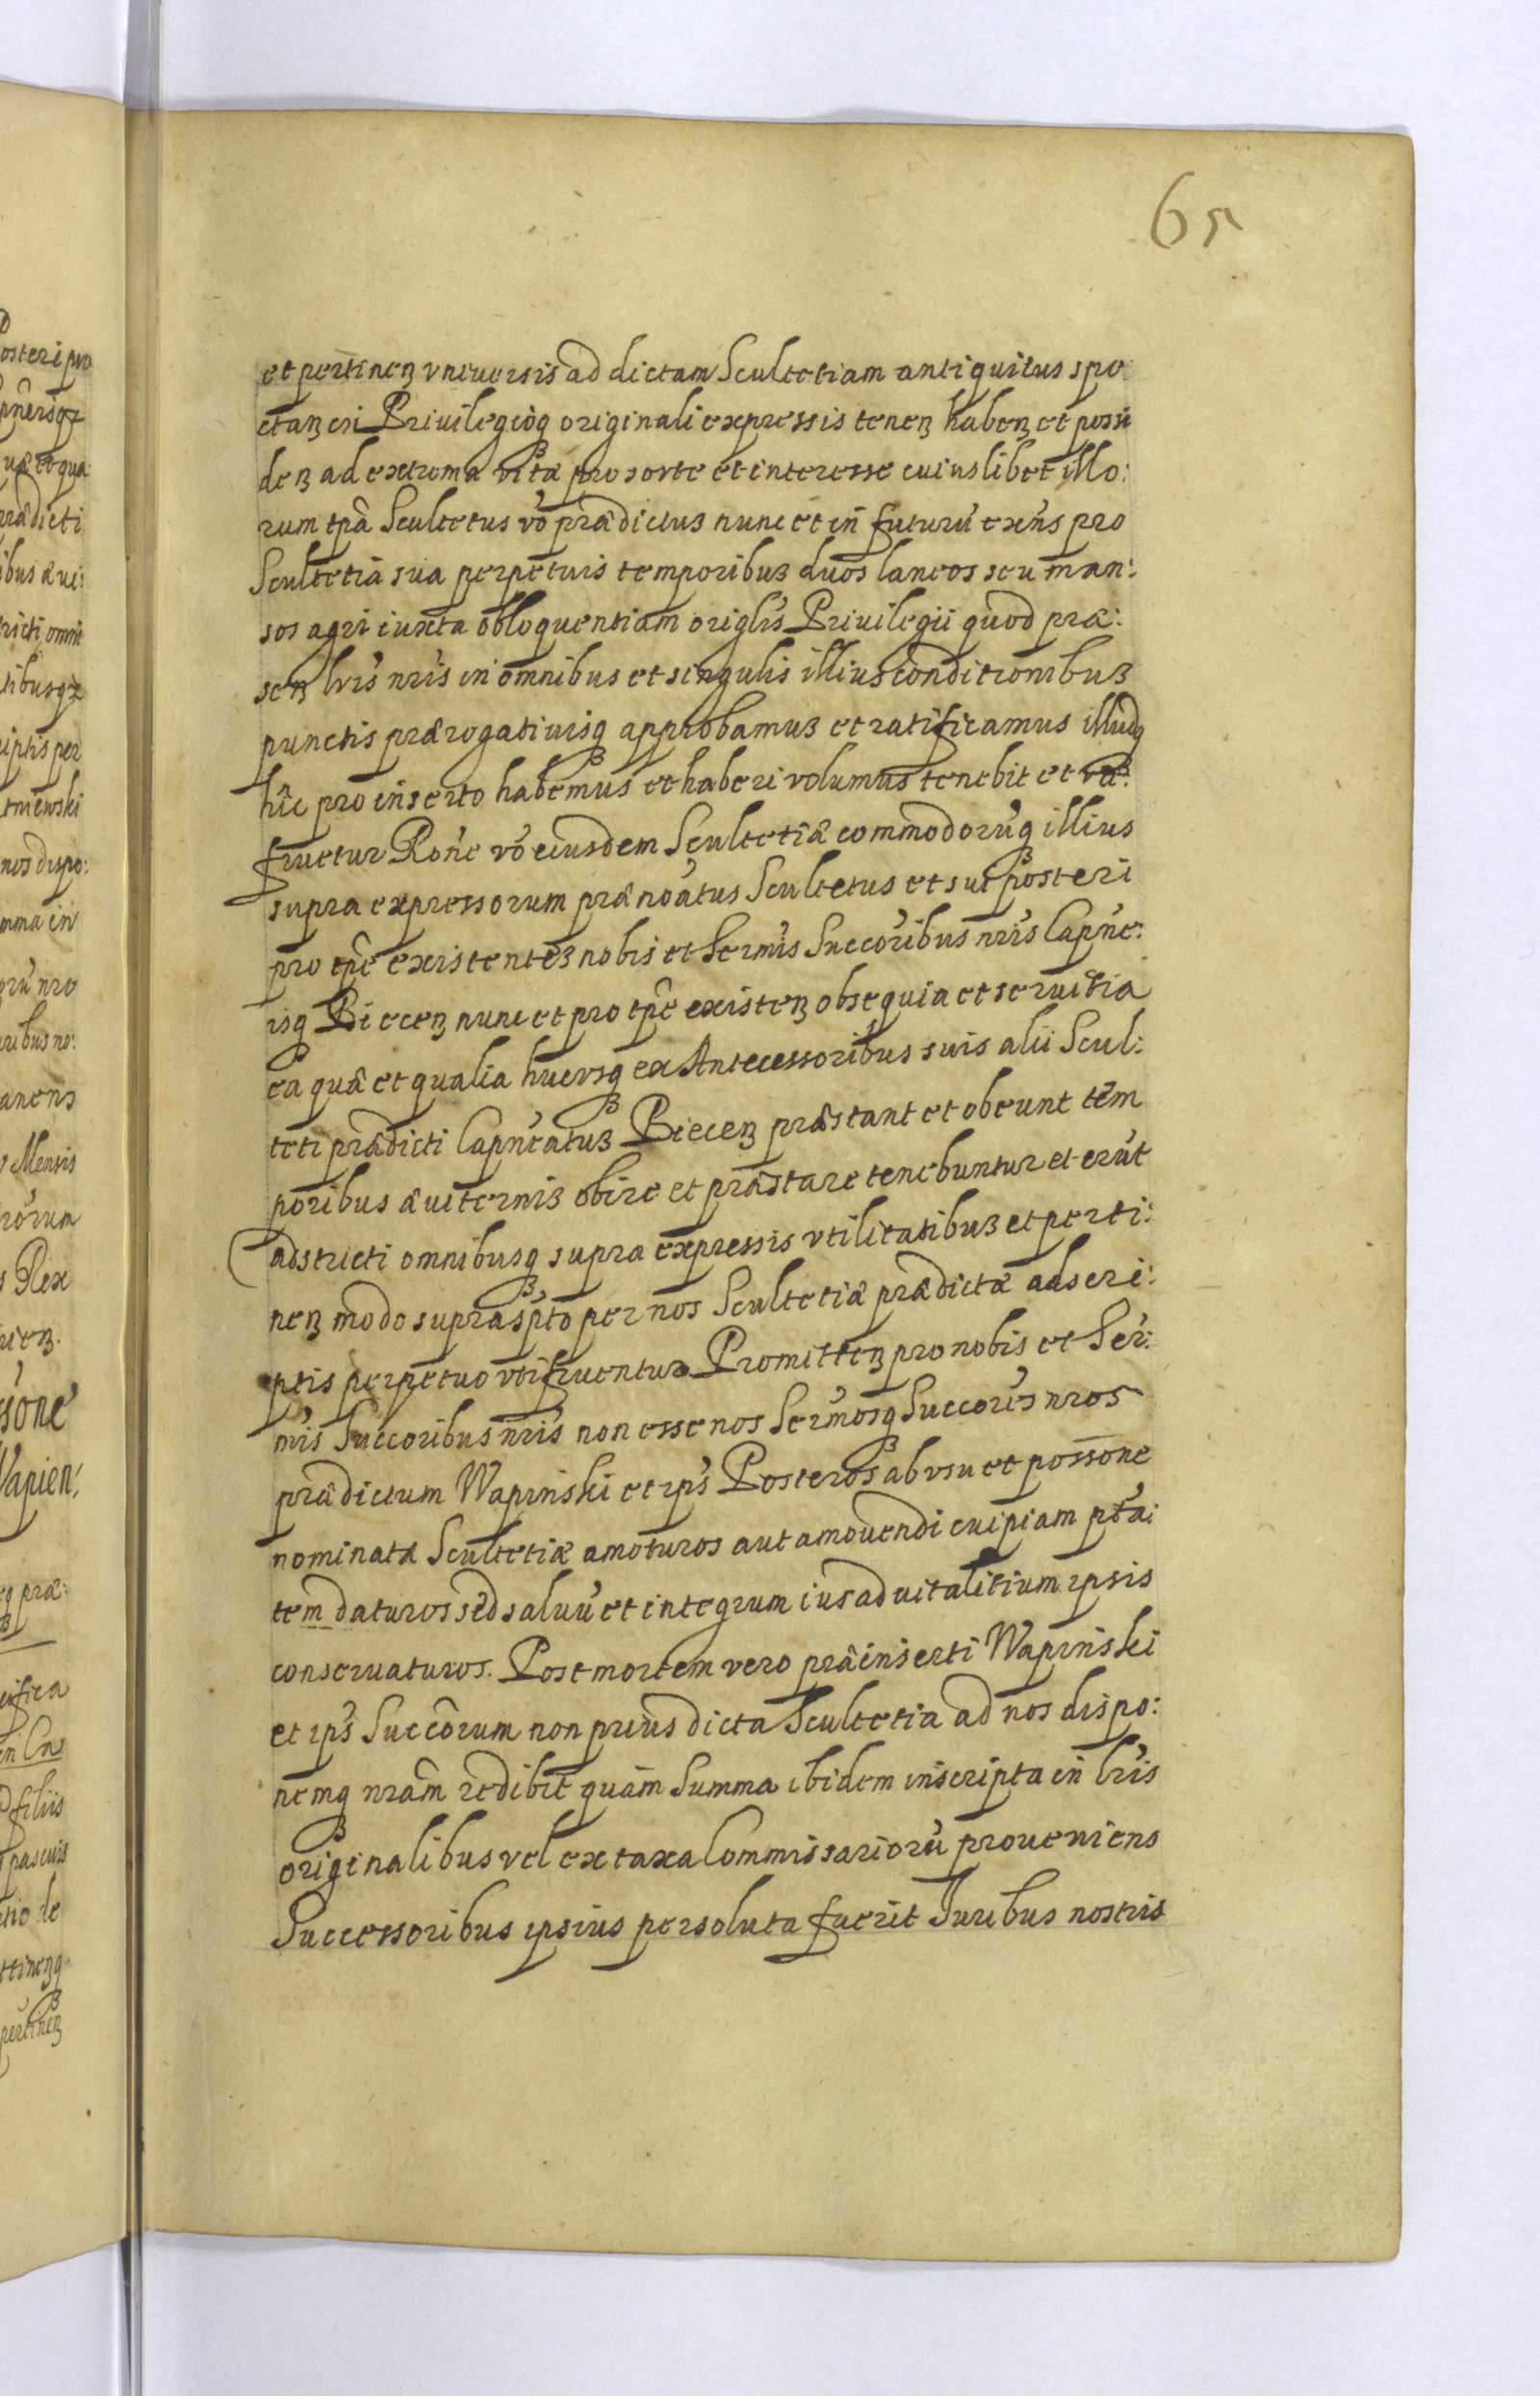 65
et pertinen vniuersis ad dictam Scultetiam antiquitus spe:
ctan in Priuilegioq originali expressis tenen haben et possi
den ad extrema vitæ pro sorte et interesse cuiuslibet illo:
rum tpâ Scultetus vo prædictus nunc et in futurũ exns pro
Scultetia sua perpetuis temporibus duos laneos seu man:
sos agri iuxta obloquentiam origlis Priuilegii quod præ:
sen lris nris in omnibus et singulis illius conditionibus
punctis prærogatiuisq approbamus et ratificamus illudq
hîc pro inserto habemus et haberi volumus tenebit et
fruetur Rone vo eiusdem Scultetiæ commodorũq illius
supra expressorum prænoatus Scultetus et sui posteri
pro tpe existentes nobis et Sermis Succoribus nris Capne:
isq Biecen nunc et pro tpe existen obsequia et seruitia
ea quæ et qualia hucusq ex Antecessoribus suis alii Scul:
teti prædicti Capneatus Biecen præstant et obeunt tem
poribus æuiternis obire et præstare tenebuntur et erũt
adstricti omnibusq supra expressis vtilitatibus et perti:
nen modo suprasपto per nos Scultetiæ prædictæ adscri:
ptis perpetuo vti fruentur Promitten pro nobis et Ser:
mis Succoribus nris non esse nos Sermosq Succores nros
prædictum Wapinski et ips Posteros ab vsu et possone
nominatæ Scultetiæ amoturos aut amouendi cuipiam ptai
tem daturos sed saluũ et integrum ius aduitalitium ipsis
conseruaturos. Post mortem vero præinserti Wapinski
et ips Succorum non prius dicta Scultetia ad nos dispo:
nemq nram redibit quam Summa ibidem inscripta in lris
originalibus vel ex taxa Commissariorũ proueniens
Successoribus ipsius persoluta fuerit Iuribus nostris